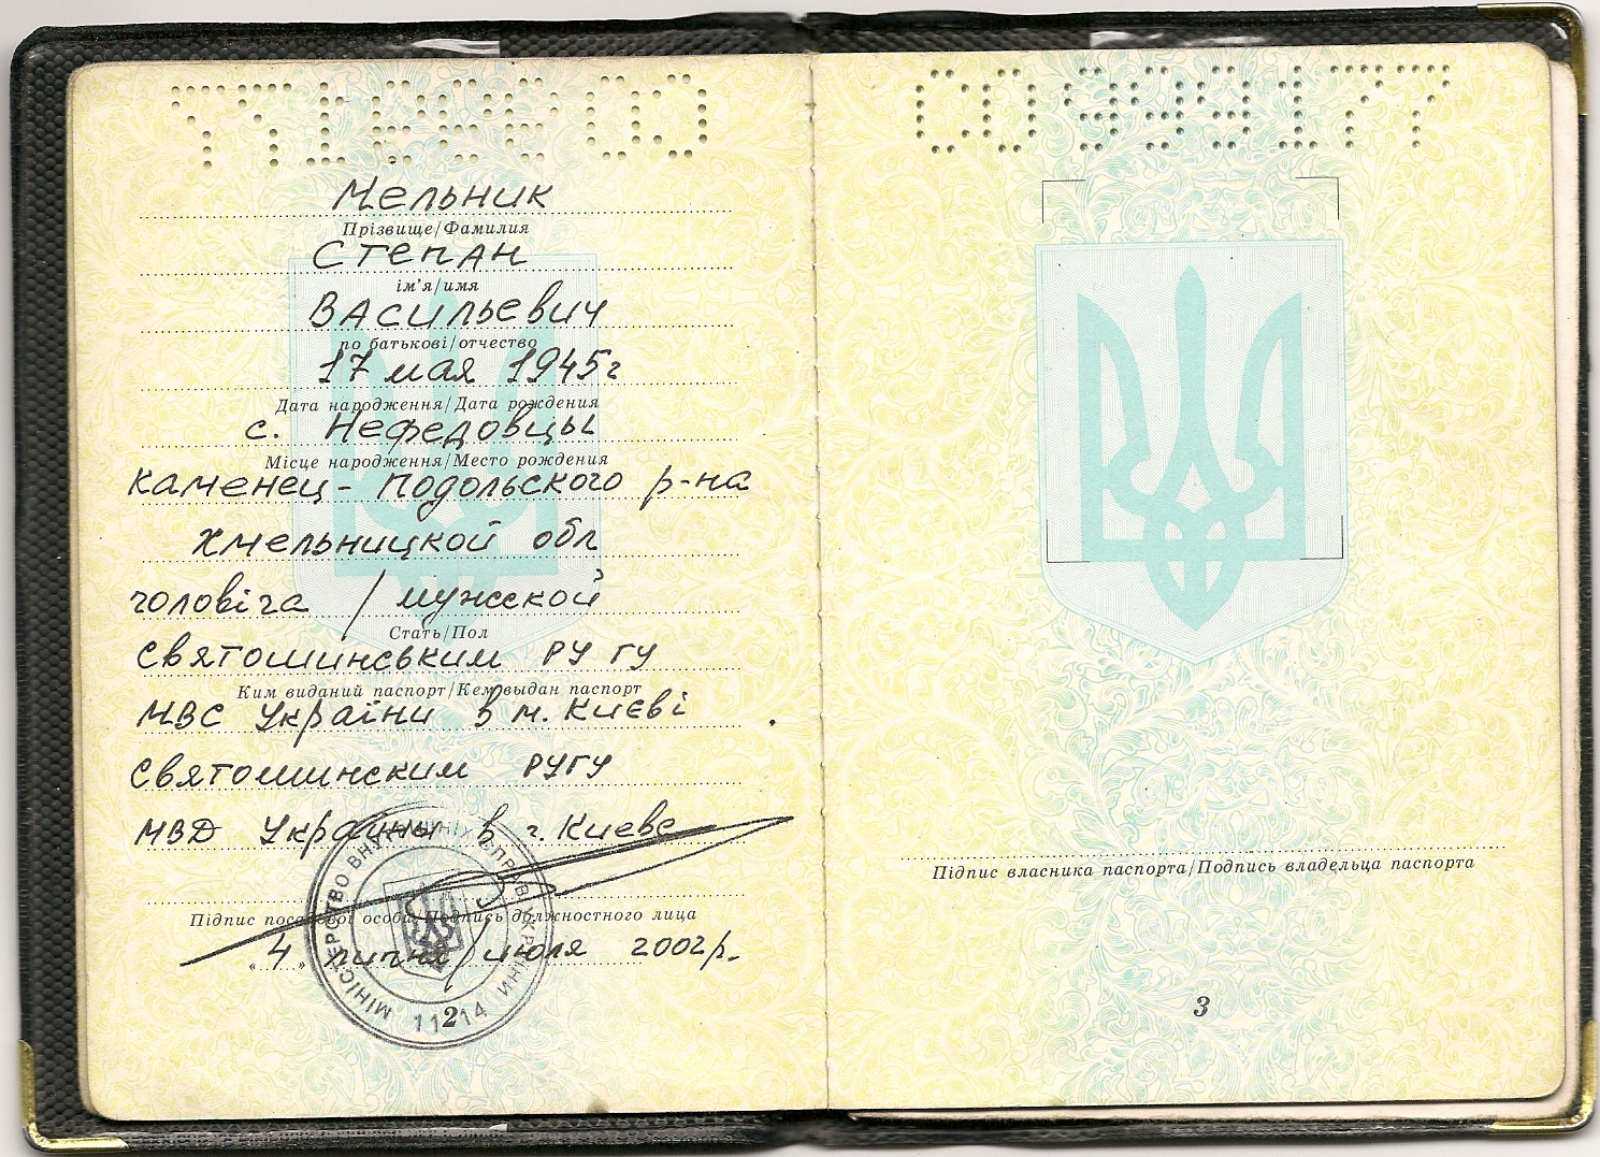 Мельник
Прізвище/Фамилия
Степан
ім'я/имя
Васильевич
по батькові/отчество
17 мая 1945г
Дата народження/Дата рождения
с. Нефедовцы
Місце народження/Место рождения
Каменец-Подольского р-на
Хмельницкой обл
чоловіча / мужской
Стать/Пол
Святошинським РУ ГУ
Ким виданий паспорт/Кем выдан паспорт
МВС України в м. Києві
Святошинским РУГУ
МВД Украины в г. Киеве
Підпис посадової особи/Подпись должностного лица
"4" липня/июля 2002р.
МІНІСТЕРСТВО ВНУТРІШНІХ СПРАВ УКРАЇНИ
2
999177
Підпис власника паспорта/Подпись владельца паспорта
3